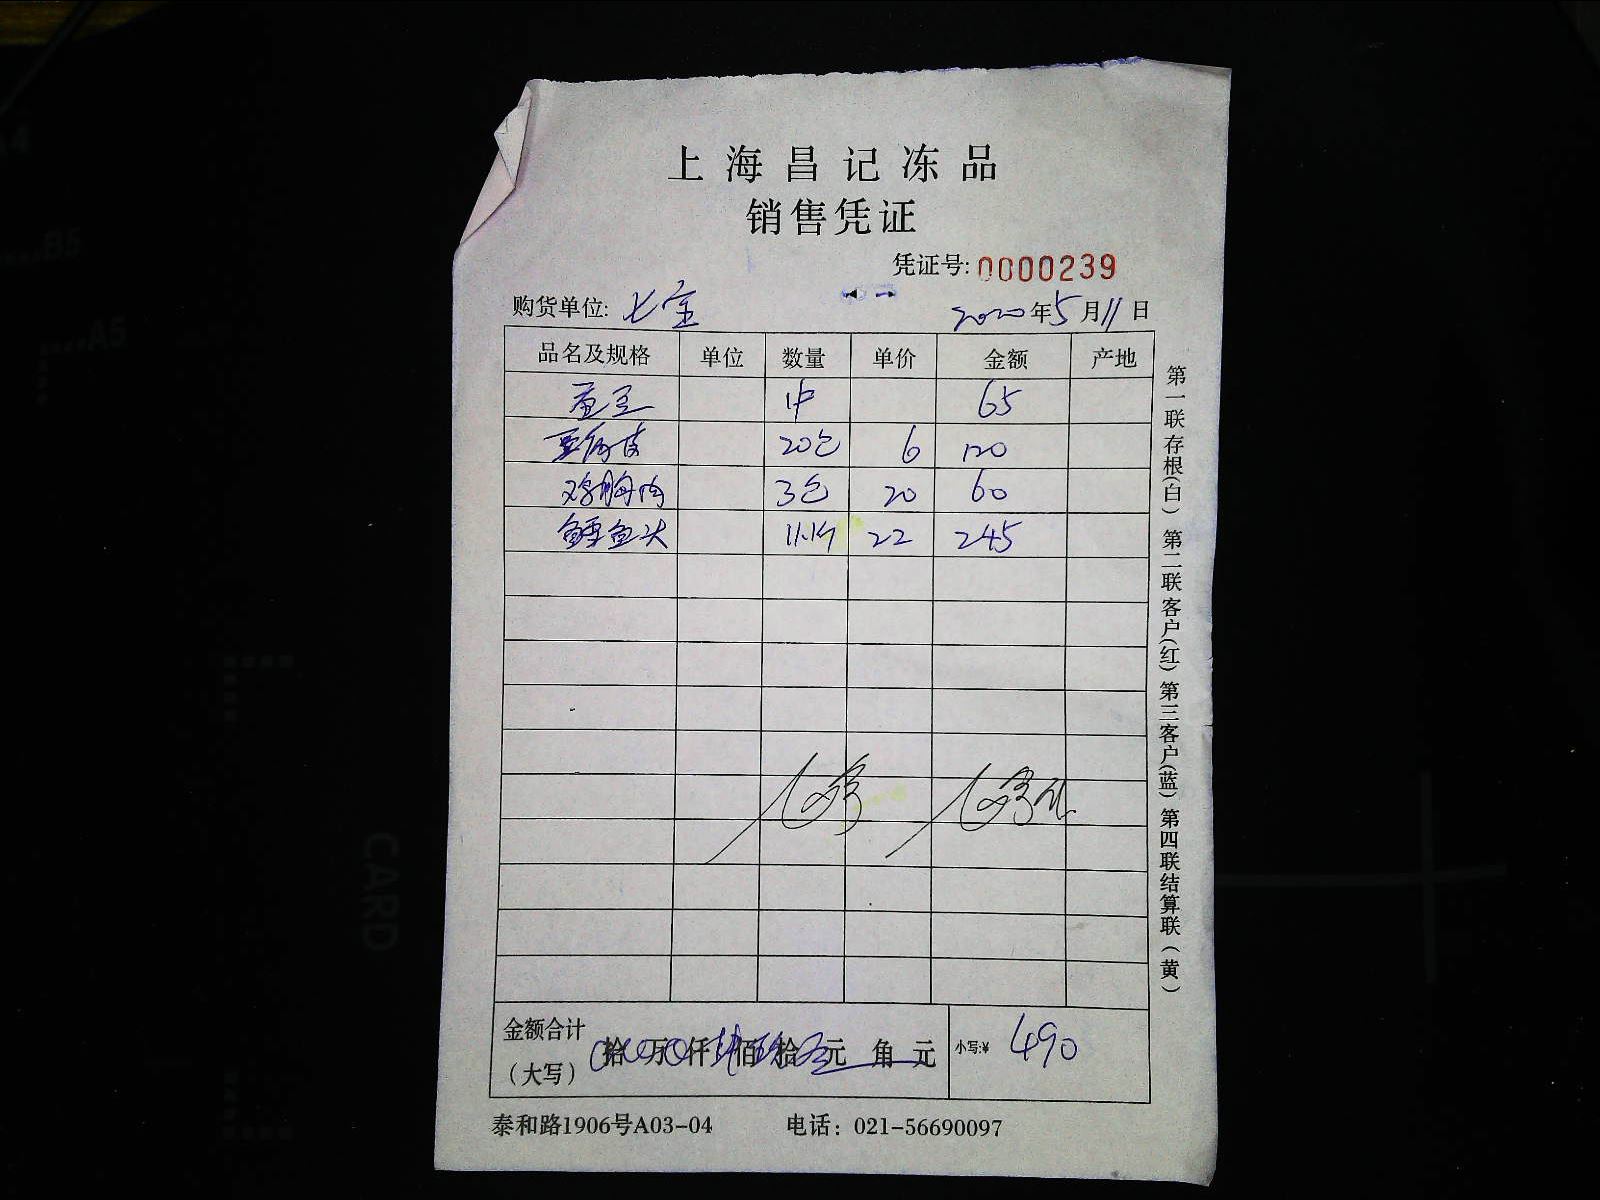 上海昌记冻品
销售凭证
凭证号: 0000239
购货单位: 七宝
2020年5月11日
品名及规格 单位 数量 单价 金额 产地
1件 65
20包 6 120
鸡胸肉 3包 20 60
鱼头 11.1斤 22 245
金额合计 拾 万 仟 佰 拾 元 角 元 小写:¥ 490
(大写)
泰和路1906号A03-04 电话: 021-56690097
第一联存根(白) 第二联客户(红) 第三客户(蓝) 第四联结算联(黄)